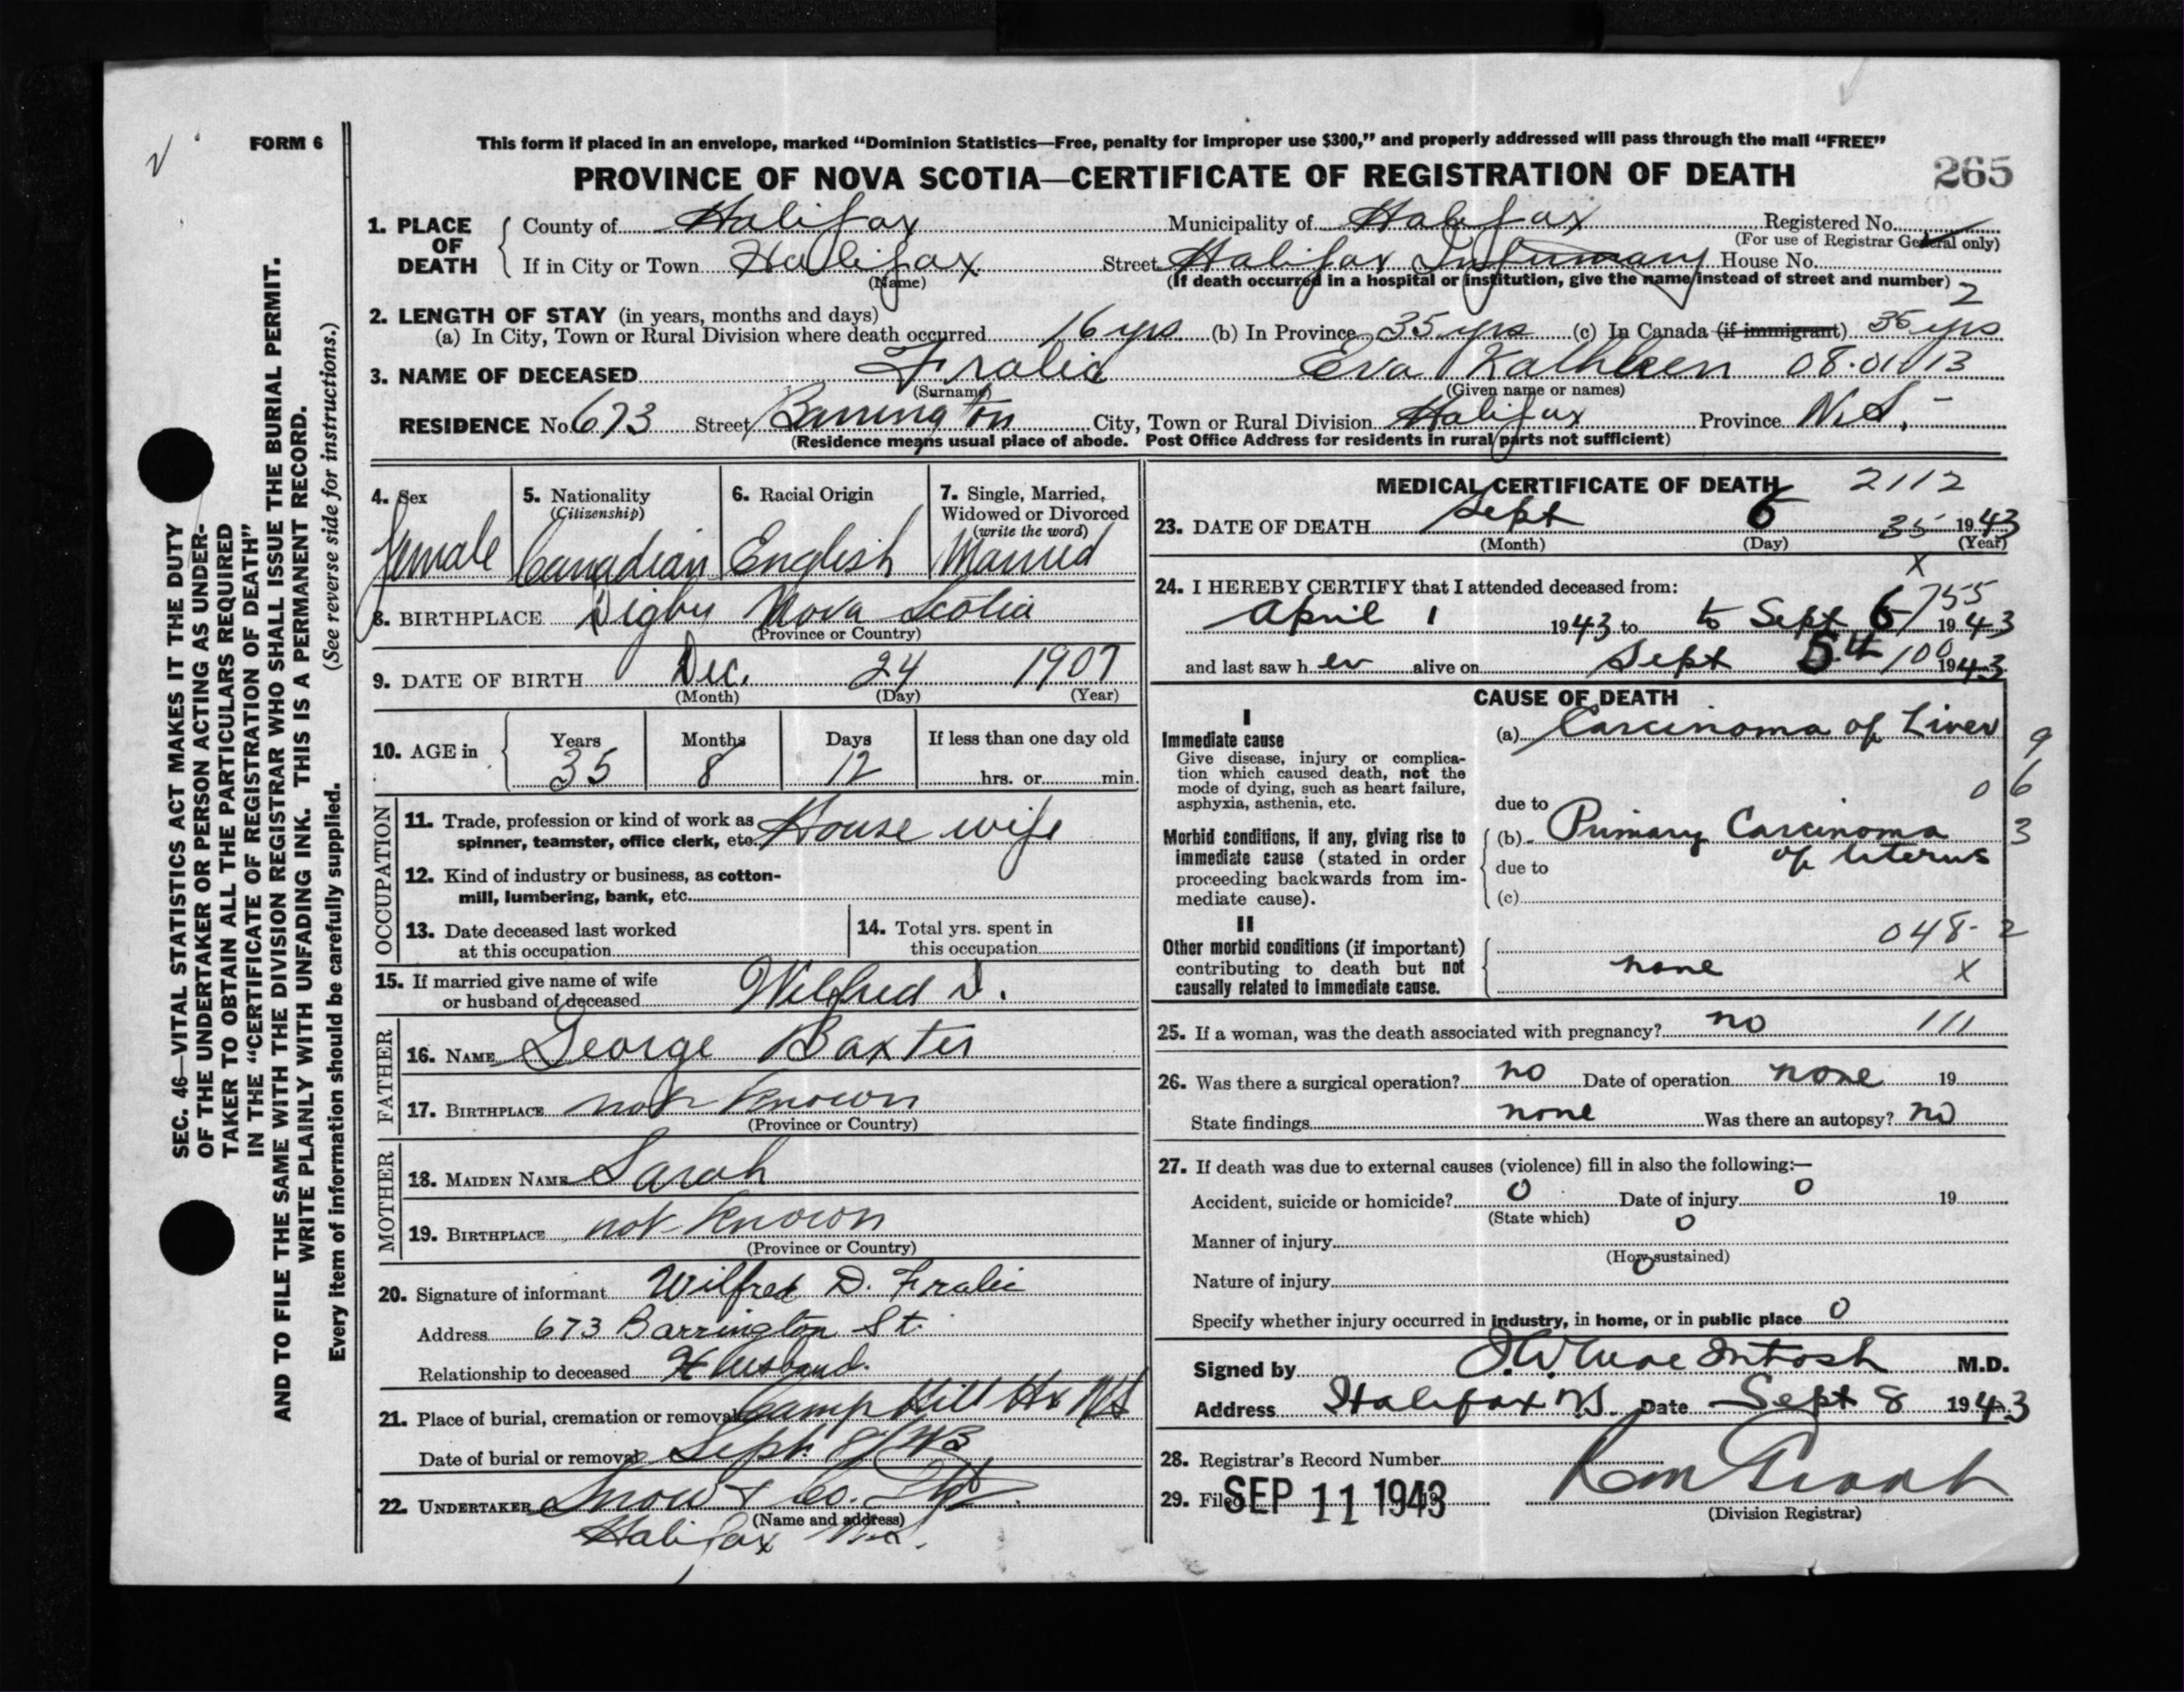 FORM 6
This form if placed in an envelope, marked "Dominion Statistics—Free, penalty for improper use $300," and properly addressed will pass through the mail "FREE"
PROVINCE OF NOVA SCOTIA—CERTIFICATE OF REGISTRATION OF DEATH 265
1. PLACE OF DEATH
County of Halifax Municipality of Halifax Registered No.
(For use of Registrar General only)
If in City or Town Halifax Street Halifax Infirmary House No.
(Name) (If death occurred in a hospital or institution, give the name instead of street and number) 2
2. LENGTH OF STAY (in years, months and days)
(a) In City, Town or Rural Division where death occurred 16 yrs (b) In Province 35 yrs (c) In Canada (if immigrant) 35 yrs
3. NAME OF DECEASED Fralic Eva Kathleen 08.01013
(Surname) (Given name or names)
RESIDENCE No. 673 Street Barrington City, Town or Rural Division Halifax Province N.S.
(Residence means usual place of abode. Post Office Address for residents in rural parts not sufficient)
4. Sex
Female
5. Nationality
(Citizenship)
Canadian
6. Racial Origin
English
7. Single, Married, Widowed or Divorced
(write the word)
Married
8. BIRTHPLACE Digby Nova Scotia
(Province or Country)
9. DATE OF BIRTH Dec. 24 1907
(Month) (Day) (Year)
10. AGE in Years Months Days If less than one day old
35 8 12 hrs. or min.
OCCUPATION
11. Trade, profession or kind of work as House wife
spinner, teamster, office clerk, etc.
12. Kind of industry or business, as cotton-
mill, lumbering, bank, etc.
13. Date deceased last worked
at this occupation
14. Total yrs. spent in
this occupation
15. If married give name of wife
or husband of deceased Wilfred D.
FATHER
16. NAME George Baxter
17. BIRTHPLACE not known
(Province or Country)
MOTHER
18. MAIDEN NAME Sarah
19. BIRTHPLACE not known
(Province or Country)
20. Signature of informant Wilfred D. Fralic
Address 673 Barrington St.
Relationship to deceased Husband.
21. Place of burial, cremation or removal Camp Hill Hx NS
Date of burial or removal Sept. 8/43
22. UNDERTAKER Snow & Co. Ltd.
(Name and address)
Halifax N.S.
MEDICAL CERTIFICATE OF DEATH 2112
23. DATE OF DEATH Sept 6 35 1943
(Month) (Day) (Year)
X
24. I HEREBY CERTIFY that I attended deceased from:
April 1 1943 to to Sept 6 1943
755
and last saw her alive on Sept 5th 1943
100
CAUSE OF DEATH
I
Immediate cause
Give disease, injury or complica-
tion which caused death, not the
mode of dying, such as heart failure,
asphyxia, asthenia, etc.
(a) Carcinoma of Liver 9
due to 0 6
Morbid conditions, if any, giving rise to
immediate cause (stated in order
proceeding backwards from im-
mediate cause).
(b) Primary Carcinoma 3
of Uterus
due to
(c)
II
Other morbid conditions (if important)
contributing to death but not
causally related to immediate cause.
048-2
none X
25. If a woman, was the death associated with pregnancy? no 111
26. Was there a surgical operation? no Date of operation none 19
State findings none Was there an autopsy? no
27. If death was due to external causes (violence) fill in also the following:—
Accident, suicide or homicide? 0 Date of injury 0 19
(State which)
Manner of injury 0
(How sustained)
Nature of injury 0
Specify whether injury occurred in industry, in home, or in public place 0
Signed by MacIntosh M.D.
Address Halifax N.S. Date Sept 8 1943
28. Registrar's Record Number
29. Filed SEP 11 1943
(Division Registrar)
SEC. 46—VITAL STATISTICS ACT MAKES IT THE DUTY
OF THE UNDERTAKER OR PERSON ACTING AS UNDER-
TAKER TO OBTAIN ALL THE PARTICULARS REQUIRED
IN THE "CERTIFICATE OF REGISTRATION OF DEATH"
AND TO FILE THE SAME WITH THE DIVISION REGISTRAR WHO SHALL ISSUE THE BURIAL PERMIT.
WRITE PLAINLY WITH UNFADING INK. THIS IS A PERMANENT RECORD.
Every item of information should be carefully supplied. (See reverse side for instructions.)